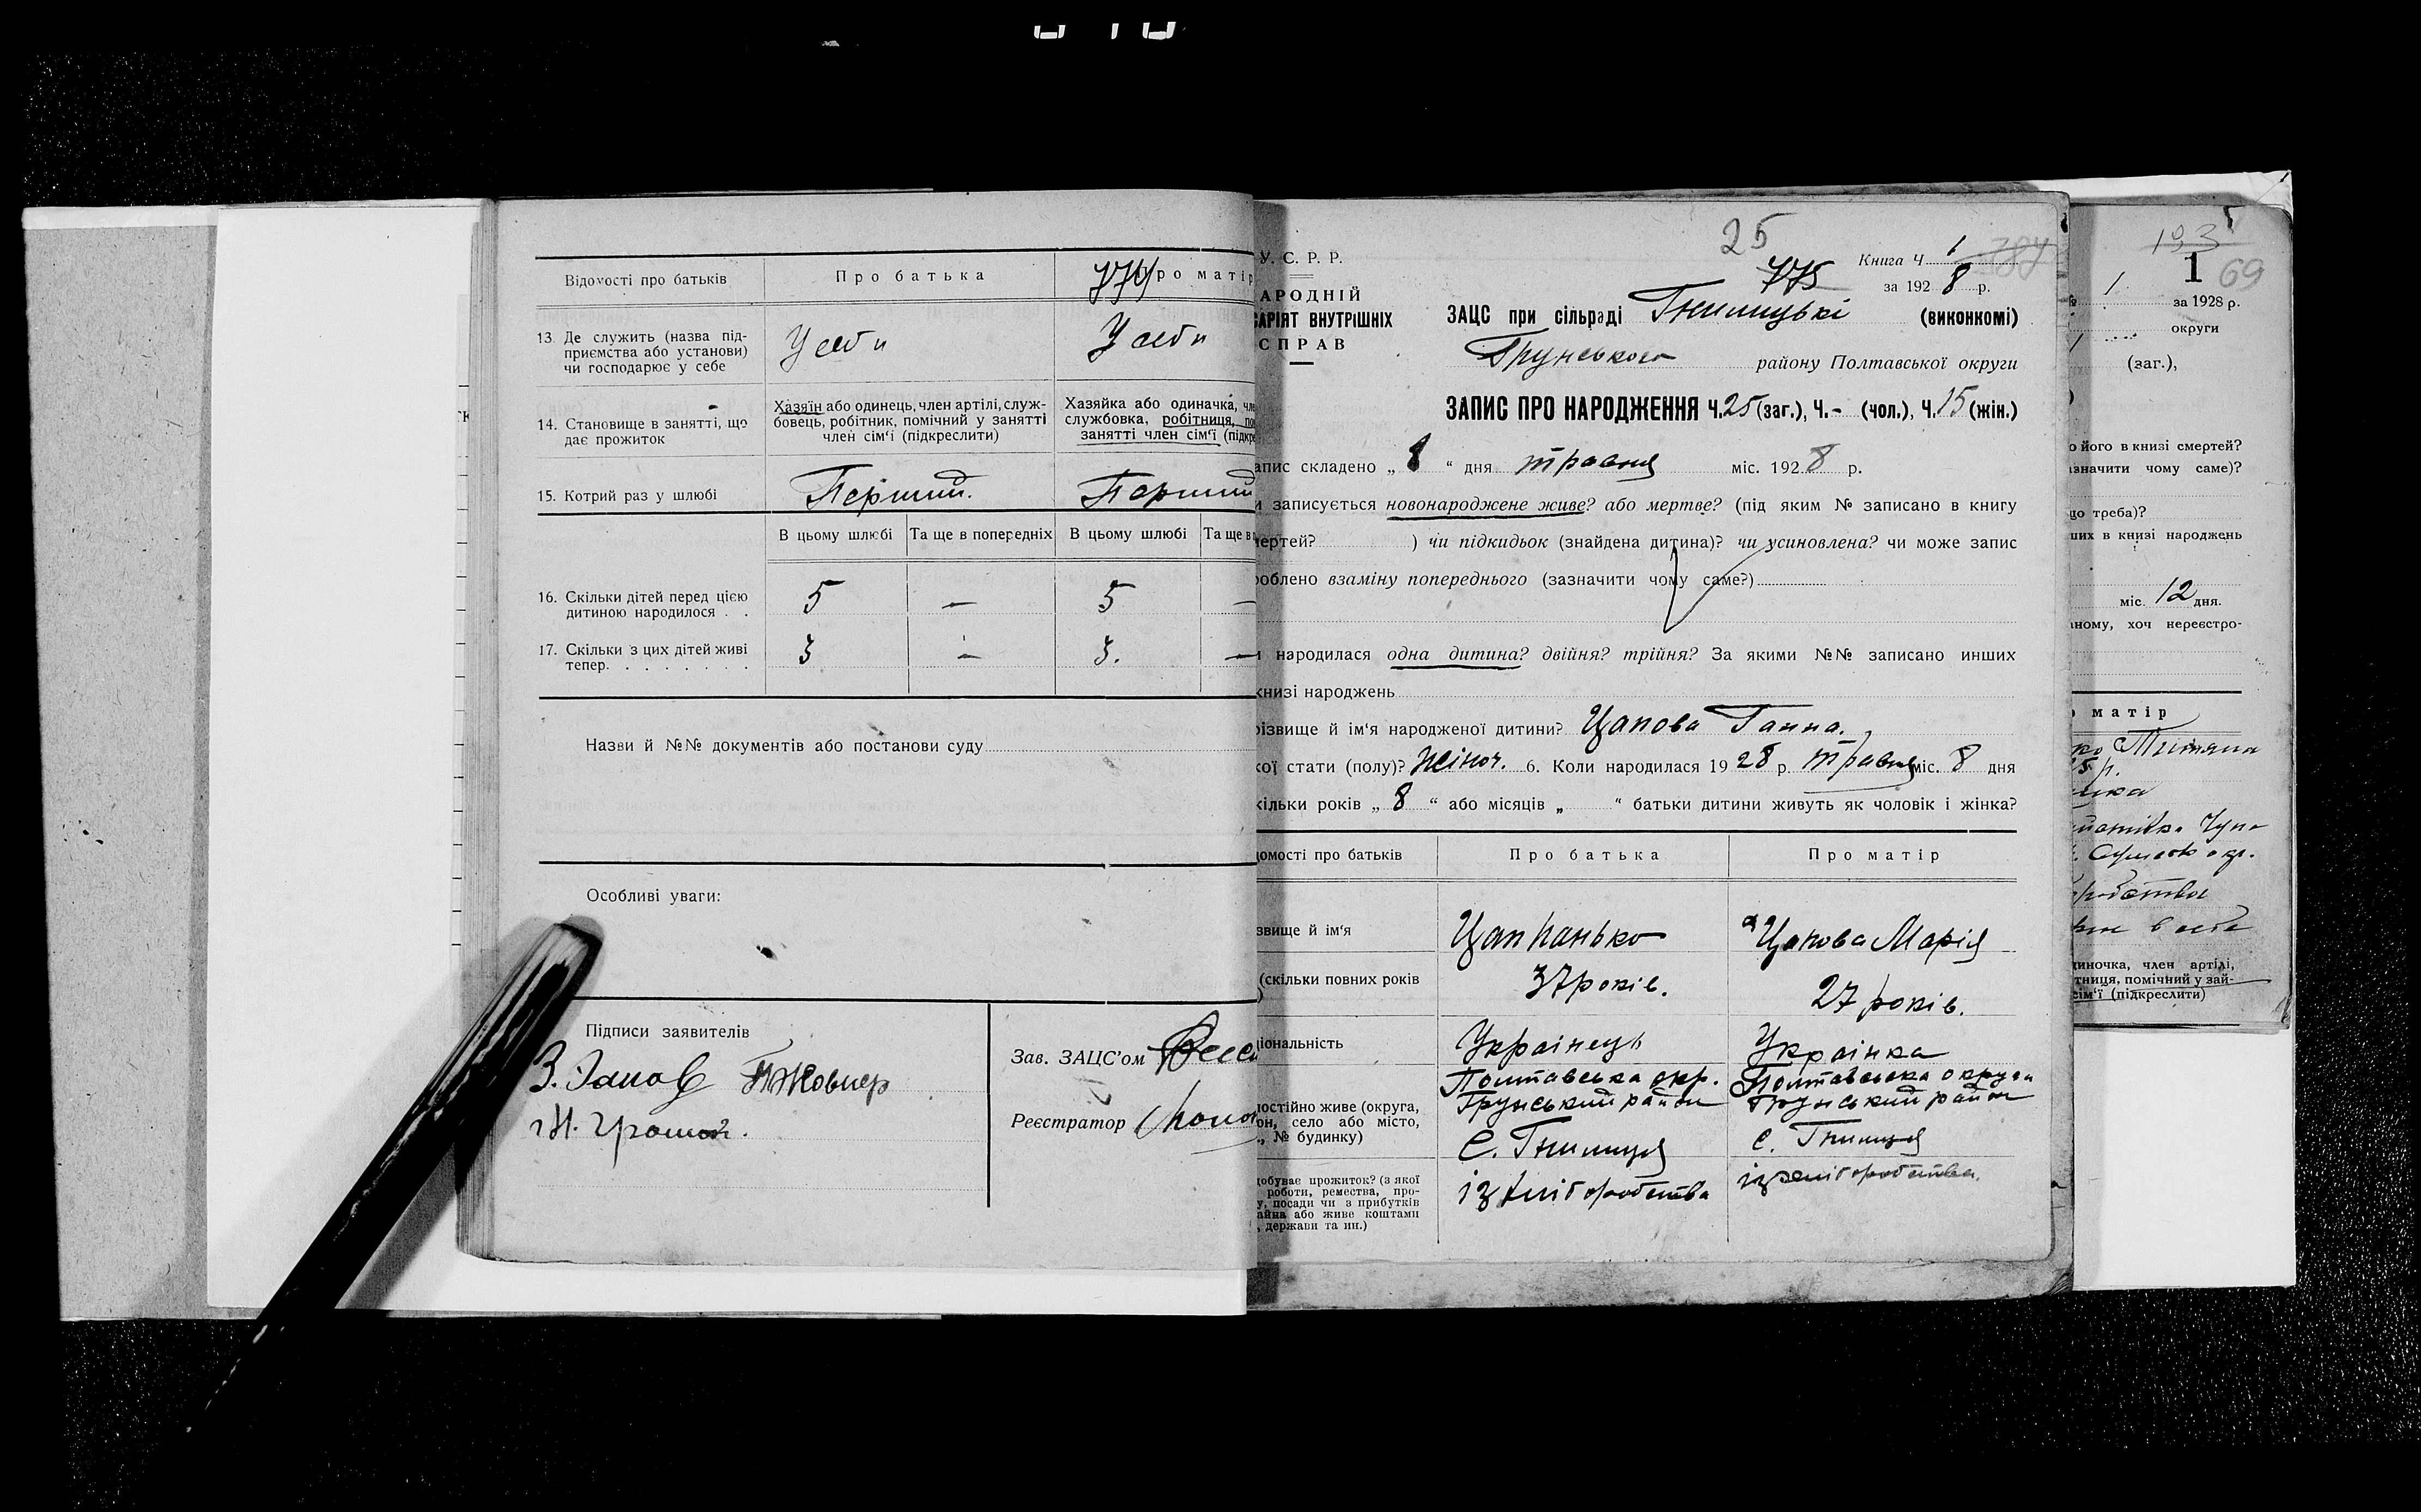 774
Відомості про батьків Про батька Про матір
13. Де служить (назва під-
приємства або установи)
чи господарює у себе
У себи У себи
14. Становище в занятті, що
дає прожиток
Хазяїн або одинець, член артілі, служ-
бовець, робітник, помічний у занятті
член сім'ї (підкреслити)
Хазяйка або одиначка, чле
службовка, робітниця, по
занятті член сім'ї (підкре
15. Котрий раз у шлюбі Перший. Перший
В цьому шлюбі Та ще в попередніх В цьому шлюбі Та ще в п
16. Скільки дітей перед цією
дитиною народилося . .
5 — 5 —
17. Скільки з цих дітей живі
тепер. . . . . . . .
3 — 3. —
Назви й №№ документів або постанови суду
Особливі уваги:
Підписи заявителів
П Жовнер
Зав. ЗАЦС'ом
Реєстратор
25
У. С. Р. Р.
АРОДНІЙ
САРІЯТ ВНУТРІШНІХ
СПРАВ
Книга Ч. 1 787
775
за 1928 р.
ЗАЦС при сільраді Гнилицькі (виконкомі)
Грунського району Полтавської округи
ЗАПИС ПРО НАРОДЖЕННЯ Ч.25 (заг.), Ч.- (чол.), Ч.15 (жін.)
апис складено „ 8 “ дня травня міс. 1928 р.
и записується новонароджене живе? або мертве? (під яким № записано в книгу
мертей? ) чи підкидьок (знайдена дитина)? чи усиновлена? чи може запис
роблено взаміну попереднього (зазначити чому саме?)
и народилася одна дитина? двійня? трійня? За якими №№ записано инших
книзі народжень
різвище й ім'я народженої дитини? Цапова Ганна.
кої стати (полу)? жіноч. 6. Коли народилася 1928 р. травня міс. 8 дня
кільки років „ 8 “ або місяців „ “ батьки дитини живуть як чоловік і жінка?
домості про батьків Про батька Про матір
звище й ім'я Цап Панько Цапова Марія
(скільки повних років 37 років. 27 років.
ціональність Українець Українка
постійно живе (округа,
он, село або місто,
., № будинку)
Полтавська окр. Полтавська округи
Грунський район Грунський район
С. Гнилиця с. Гнилиця
добуває прожиток? (з якої
роботи, ремества, про-
у, посади чи з прибутків
айна або живе коштами
, держави та ин.)
із хліборобства із хліборобства.
193
1 69
1 за 1928 р.
округи
(заг.),
о його в книзі смертей?
азначити чому саме)?
що треба)?
ших в книзі народжень
міс. 12 дня.
аному, хоч нереєстро-
о матір
ко Титяна
5 р.
нка
окр.
робства
в себе
диночка, член артілі,
тниця, помічний у зай-
сім'ї (підкреслити)